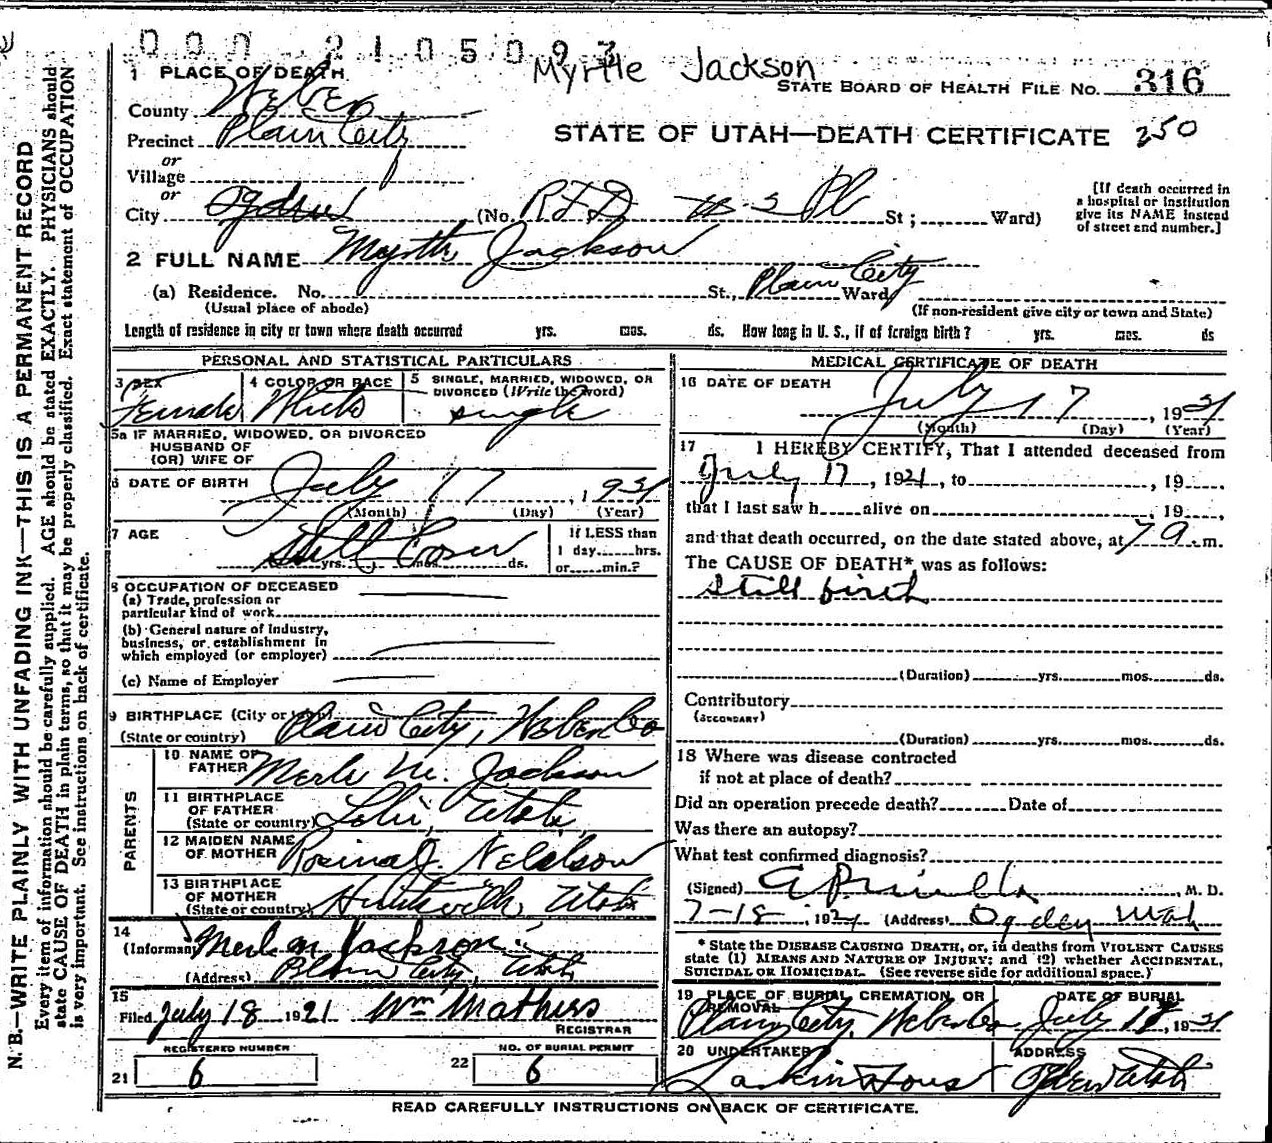 000 2105093
Myrtle Jackson
1 PLACE OF DEATH
STATE BOARD OF HEALTH FILE NO. 316
County Weber
Precinct Plain City
STATE OF UTAH—DEATH CERTIFICATE 250
or
Village
or
City Ogden (No. RFD St; Ward)
[If death occurred in
a hospital or institution
give its NAME instead
of street and number.]
2 FULL NAME Myrtle Jackson
(a) Residence. No. St., Plain City Ward
(Usual place of abode) (If non-resident give city or town and State)
Length of residence in city or town where death occurred yrs. mos. ds. How long in U. S., if of foreign birth? yrs. mos. ds
PERSONAL AND STATISTICAL PARTICULARS
3 SEX Female
4 COLOR OR RACE White
5 SINGLE, MARRIED, WIDOWED, OR
DIVORCED (Write the word)
single
5a IF MARRIED, WIDOWED, OR DIVORCED
HUSBAND OF
(OR) WIFE OF
6 DATE OF BIRTH July 17, 1921
(Month) (Day) (Year)
7 AGE Still
yrs. mos. ds.
If LESS than
1 day hrs.
or min.?
8 OCCUPATION OF DECEASED
(a) Trade, profession or
particular kind of work
(b) General nature of industry,
business, or establishment in
which employed (or employer)
(c) Name of Employer
9 BIRTHPLACE (City or town) Plain City, Weber Co
(State or country)
PARENTS
10 NAME OF
FATHER Merle M. Jackson
11 BIRTHPLACE
OF FATHER
(State or country) Lehi, Utah
12 MAIDEN NAME
OF MOTHER
13 BIRTHPLACE
OF MOTHER
(State or country) Huntsville, Utah
14
(Informant) Merl m Jackson
(Address) Plain City, Utah
15
Filed July 18 1921 Wm Mathers
REGISTRAR
REGISTERED NUMBER
21 6
NO. OF BURIAL PERMIT
22 6
MEDICAL CERTIFICATE OF DEATH
16 DATE OF DEATH
July 17, 1921
(Month) (Day) (Year)
17 I HEREBY CERTIFY, That I attended deceased from
July 17, 1921, to , 19
that I last saw h alive on , 19 ,
and that death occurred, on the date stated above, at 7 a.m.
The CAUSE OF DEATH* was as follows:
Still birth
(Duration) yrs. mos. ds.
Contributory
(SECONDARY)
(Duration) yrs. mos. ds.
18 Where was disease contracted
if not at place of death?
Did an operation precede death? Date of
Was there an autopsy?
What test confirmed diagnosis?
(Signed) M. D.
7-18, 1921 (Address) Ogden Utah
* State the DISEASE CAUSING DEATH, or, in deaths from VIOLENT CAUSES
state (1) MEANS AND NATURE OF INJURY; and (2) whether ACCIDENTAL,
SUICIDAL OR HOMICIDAL. (See reverse side for additional space.)
19 PLACE OF BURIAL, CREMATION, OR
REMOVAL
Plain City, Weber Co
DATE OF BURIAL
July 18, 1921
20 UNDERTAKER
Larkin Sons
ADDRESS
Ogden Utah
READ CAREFULLY INSTRUCTIONS ON BACK OF CERTIFICATE.
N. B.—WRITE PLAINLY WITH UNFADING INK—THIS IS A PERMANENT RECORD
Every item of information should be carefully supplied. AGE should be stated EXACTLY. PHYSICIANS should
state CAUSE OF DEATH in plain terms, so that it may be properly classified. Exact statement of OCCUPATION
is very important. See instructions on back of certificate.